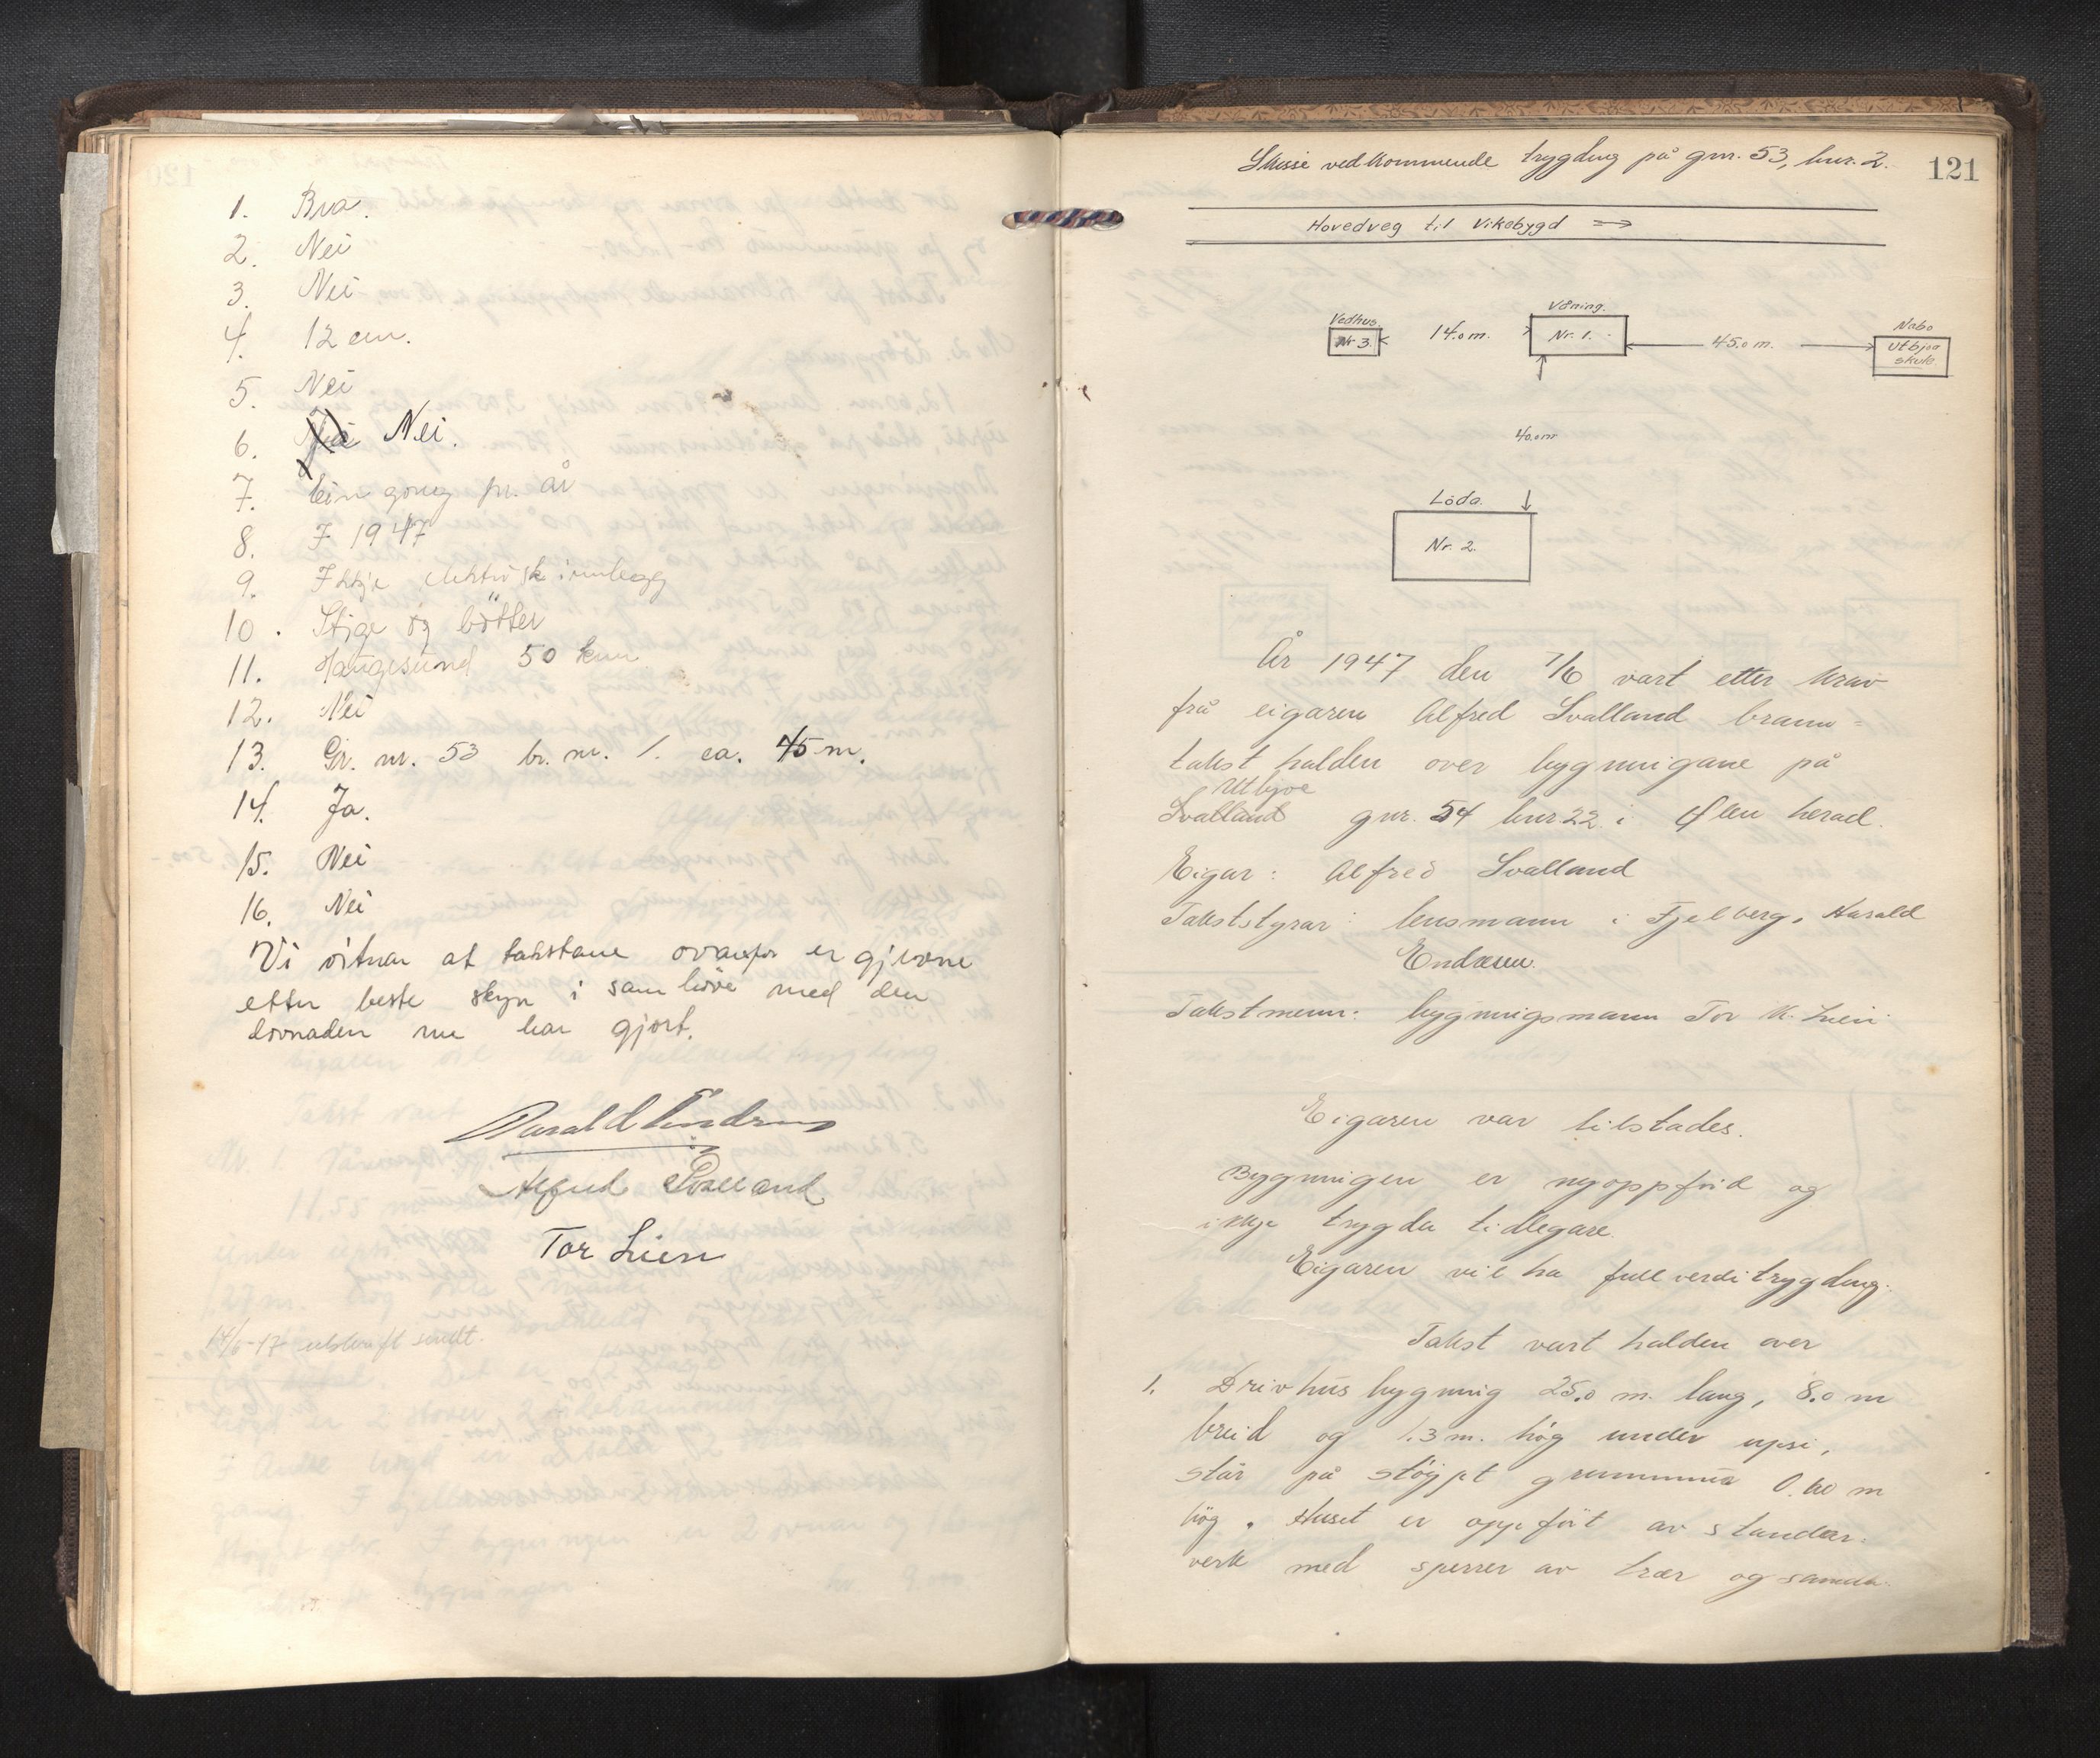 1. Bra.
2. Nei
3. Nei
4. 12 cm.
5. Nei
6. Nei.
7. Ein gong pr. år
8. I 1947
9. Ikkje elektrisk innlegg
10. Stige og bötter
11. Haugesund 50 km
12. Nei
13. Gr. nr. 53 br. nr. 1. ca. 45 m.
14. Ja.
15. Nei
16. Nei
Vi vitnar at takstane ovanfor er gjevne
etter beste skyn i samhöve med den
me har gjort.
Harald Endresen
Alfred Svalland
Tor Lien
14/6-47 utskrift sendt.
Skisse vedkommende trygding på gnr. 53, bnr. 2.
121
Hovedveg til Vikebygd ⇒
Vedhus.
Nr 3.
14.0 m.
Våning.
Nr. 1.
45.0 m.
Nabo
Utbjoa
skule.
40.0 m
Löda.
Nr. 2.
År 1947 den 7/6 vart etter krav
frå eigaren Alfred Svalland brann=
takst halden over bygningane på
Utbjoe
Svalland gnr. 54 bnr. 22 i Ølen herad.
Eigar: Alfred Svalland
Takststyrar: lensmann i Fjelberg, Harald
Endresen.
Takstmenn: bygningsmann Tor K. Lien
Eigaren var tilstades.
Bygningen er nyoppförd og
ikkje trygda tidlegare.
Eigaren vil ha fullverditrygding.
Takst vart halden over
1. Drivhusbygning 25.0 m. lang, 8.0 m
breid og 1.3 m. hög under upsi,
står på stöypt grunnmur 0.60 m
hög. Huset er oppfört av stender-
verk med sperrer av trær og